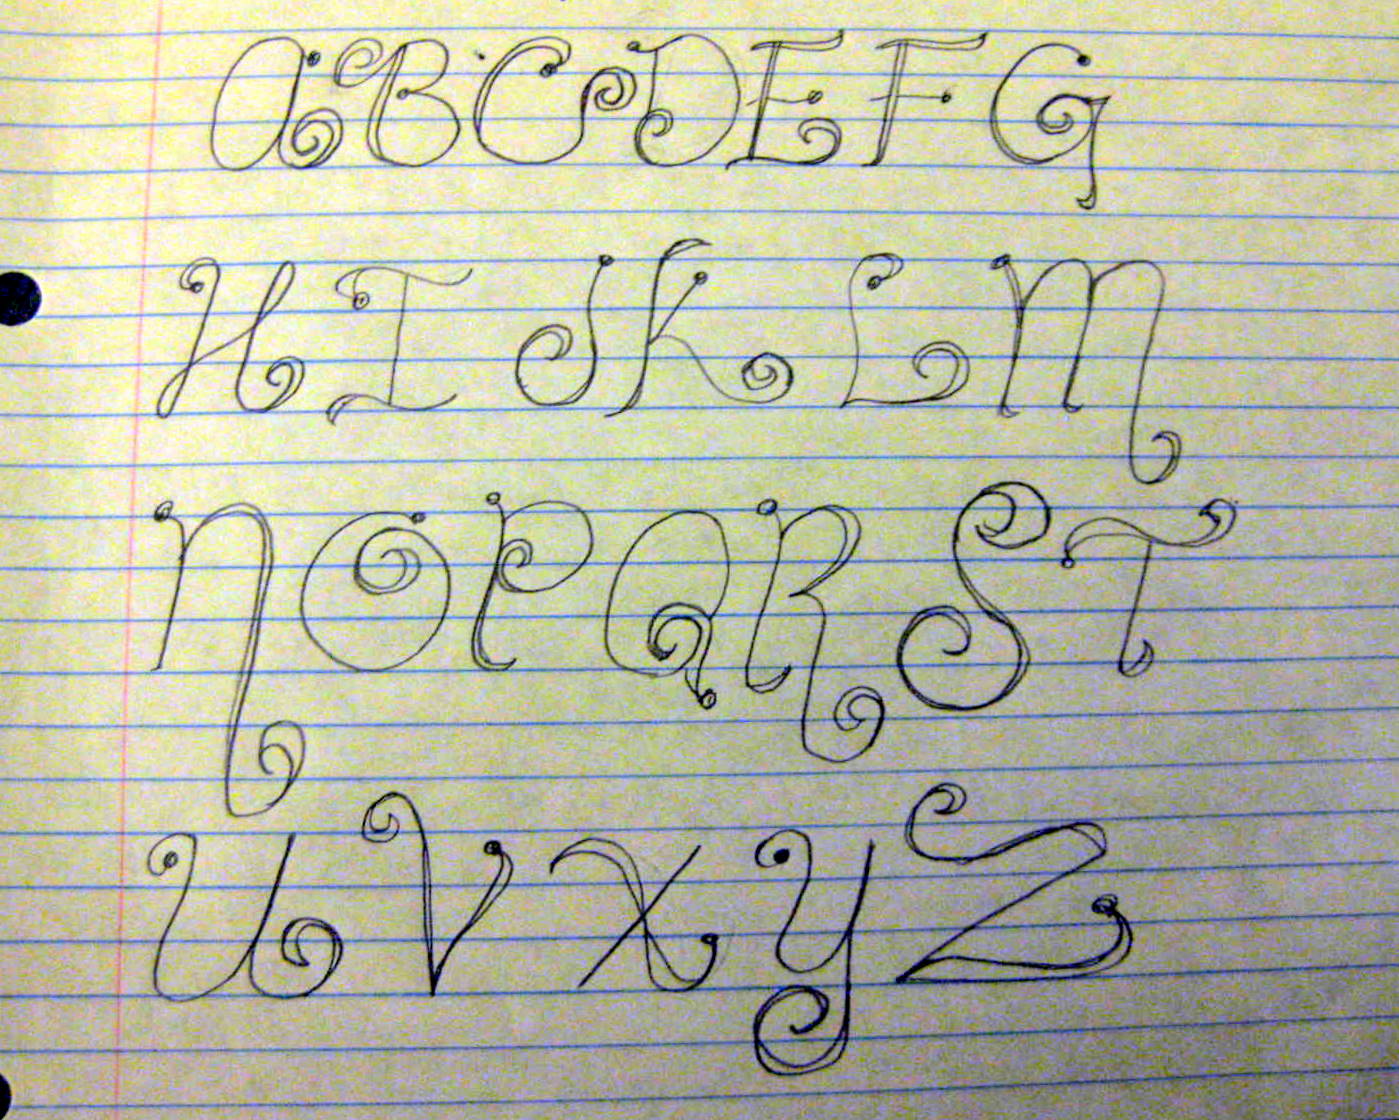 a B C D E F G
H I J K L M
N O P Q R S T
U V X Y Z